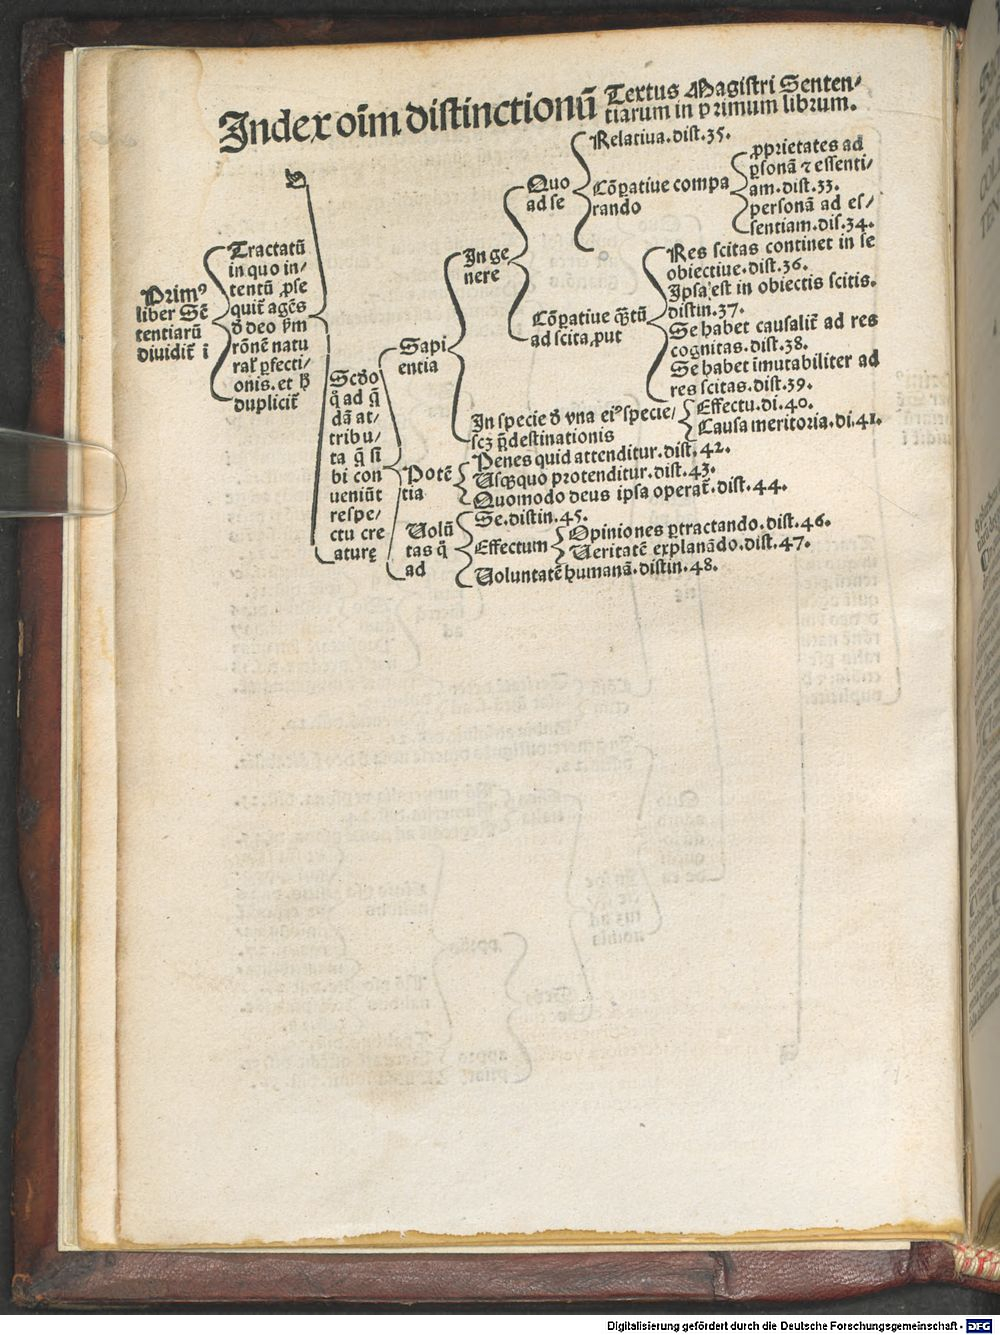 Index oīm distinctionū Textus Magistri Senten-
tiarum in primum librum.
Primꝰ
liber Sē
tentiarū
diuidit̄ ī
Tractatū
in quo in-
tentū ꝓse
quit̄ agēs
ð deo ꝑm
rōnē natu
ral' ꝑfecti-
onis. et ꝧ
duplicit̄
Scðo
q̄ ad q̄
dā at-
tribu-
ta q̄ si
bi con
ueniūt
respe-
ctu cre
aturę
Sapi
entia
In ge
nere
Quo
ad se
Relatiua. dist. 35.
Cōꝑatiue compa
rando
ꝓprietates ad
ꝑsonā ⁊ essenti-
am. dist. 33.
personā ad es-
sentiam. dis. 34.
Cōꝑatiue q̄tū
ad scita, put
Res scitas continet in se
obiectiue. dist. 36.
Ipsa est in obiectis scitis.
distin. 37.
Se habet causalit̄ ad res
cognitas. dist. 38.
Se habet īmutabiliter ad
res scitas. dist. 39.
In specie ð vna eiꝰ specie/
scꝫ p̄destinationis
Effectu. di. 40.
Causa meritoria. di. 41.
Potē
tia
Penes quid attenditur. dist. 42.
Usq̨quo protenditur. dist. 43.
Quomodo deus ipsa operat̄. dist. 44.
Uolū
tas q̄
ad
Se. distin. 45.
Effectum
Opiniones ꝑtractando. dist. 46.
Ueritatē explanādo. dist. 47.
Uoluntatē humanā. distin. 48.
Digitalisierung gefördert durch die Deutsche Forschungsgemeinschaft - DFG